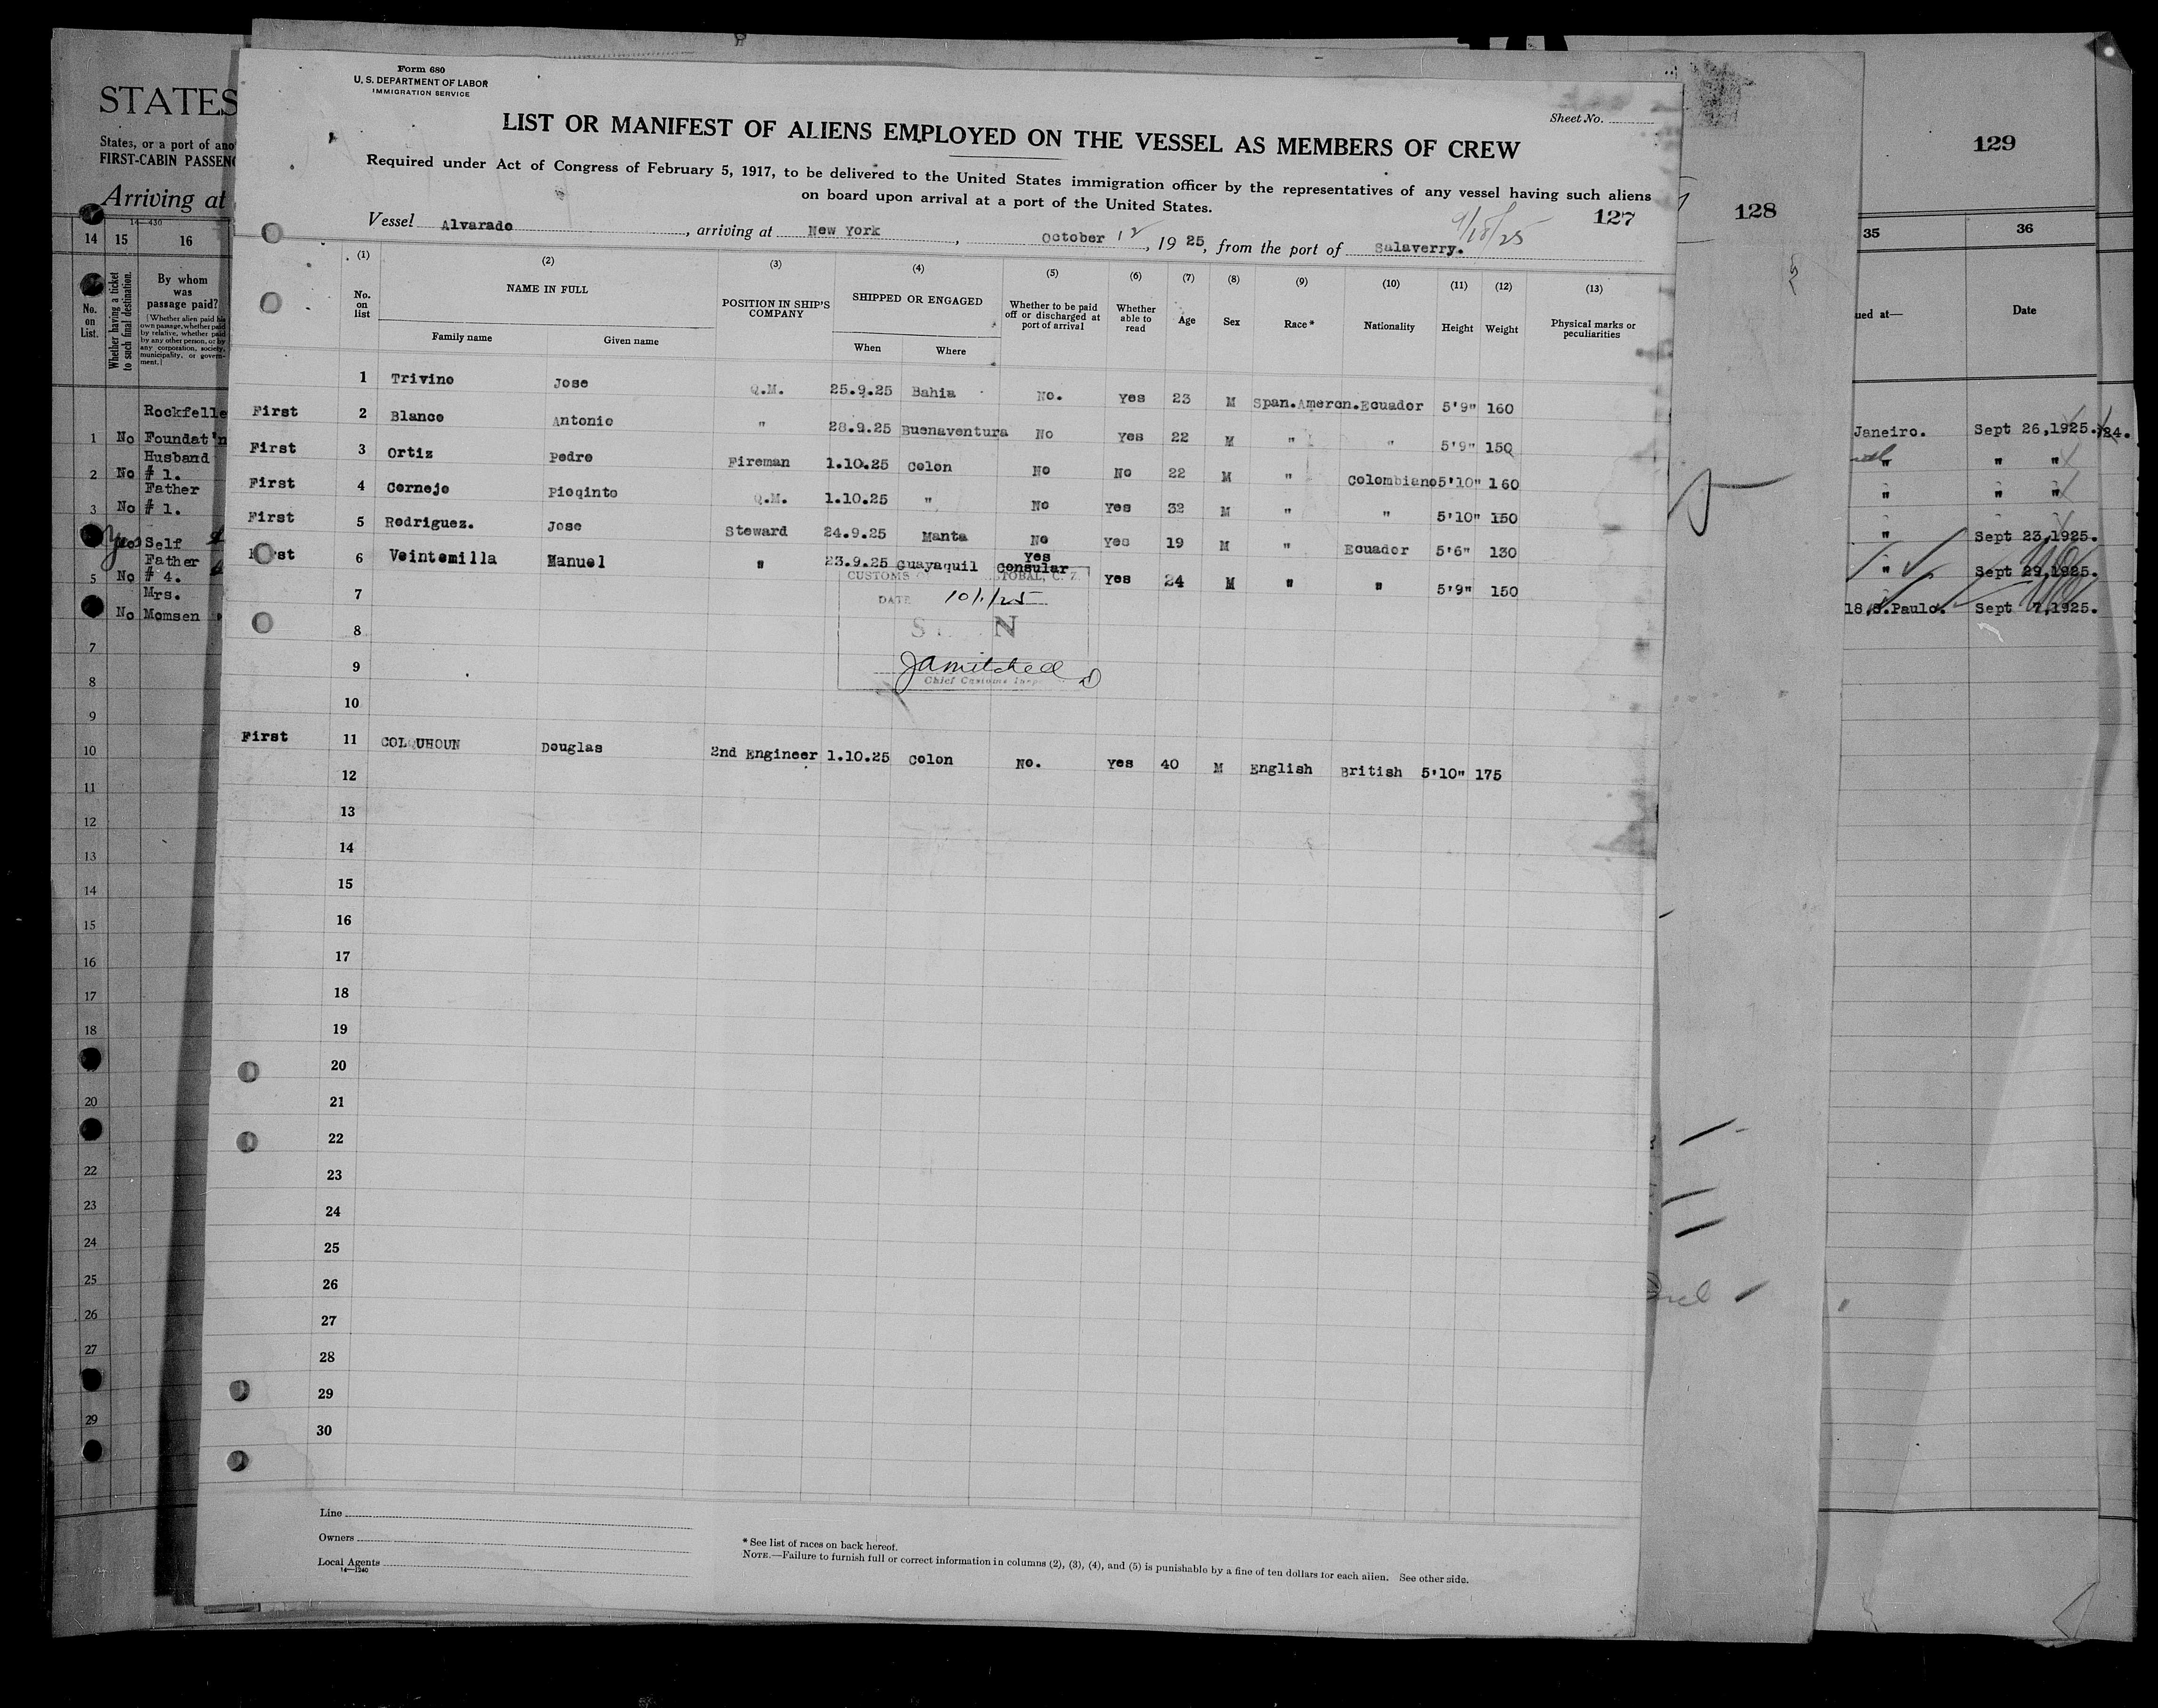 STATES
States, or a port of ano
FIRST-CABIN PASSEN
Arriving at
14—430
14 15 16
No. on List.
Whether having a ticket to such final destination.
By whom was passage paid?
(Whether alien paid his own passage, whether paid by relative, whether paid by any other person, or by any corporation, society, municipality, or government.)
Rockfelle
1 No Foundat'n
Husband
2 No # 1.
Father
3 No # 1.
Yes No Self
Father
5 No # 4.
Mrs.
No Momsen
7
8
9
10
11
12
13
14
15
16
17
18
20
22
23
24
25
26
27
29
Form 680
U. S. DEPARTMENT OF LABOR
IMMIGRATION SERVICE
Sheet No.
LIST OR MANIFEST OF ALIENS EMPLOYED ON THE VESSEL AS MEMBERS OF CREW
Required under Act of Congress of February 5, 1917, to be delivered to the United States immigration officer by the representatives of any vessel having such aliens
on board upon arrival at a port of the United States.
127
9/18/25
Vessel Alvarado, arriving at New York, October 12, 1925, from the port of Salaverry.
(1) (2) (3) (4) (5) (6) (7) (8) (9) (10) (11) (12) (13)
No. on list
NAME IN FULL
Family name Given name
POSITION IN SHIP'S COMPANY
SHIPPED OR ENGAGED
When Where
Whether to be paid off or discharged at port of arrival
Whether able to read
Age Sex Race* Nationality Height Weight
Physical marks or peculiarities
1 Trivino Jose Q.M. 25.9.25 Bahia No. Yes 23 M Span.Amercn. Ecuador 5'9" 160
First 2 Blanco Antonio " 28.9.25 Buenaventura No Yes 22 M " " 5'9" 150
First 3 Ortiz Pedro Fireman 1.10.25 Colon No No 22 M " Colombiano 5'10" 160
First 4 Cornejo Pioqinto Q.M. 1.10.25 " No Yes 32 M " " 5'10" 150
First 5 Rodriguez. Jose Steward 24.9.25 Manta No Yes 19 M " Ecuador 5'6" 130
First 6 Veintemilla Manuel " 23.9.25 Guayaquil Yes Consular Yes 24 M " " 5'9" 150
CUSTOMS STOBAL, C. Z.
7
DATE 10/1/25
8
S N
9
JAMitchell
Chief Customs Insp
10
First 11 COLQUHOUN Douglas 2nd Engineer 1.10.25 Colon No. Yes 40 M English British 5'10" 175
12
13
14
15
16
17
18
19
20
21
22
23
24
25
26
27
28
29
30
Line
Owners
Local Agents
14—1240
* See list of races on back hereof.
NOTE.—Failure to furnish full or correct information in columns (2), (3), (4), and (5) is punishable by a fine of ten dollars for each alien. See other side.
128
129
35 36
ued at— Date
Janeiro. Sept 26,1925. 24.
" " "
" " "
" Sept 23,1925.
" Sept 29,1925.
18 S.Paulo. Sept 7,1925.